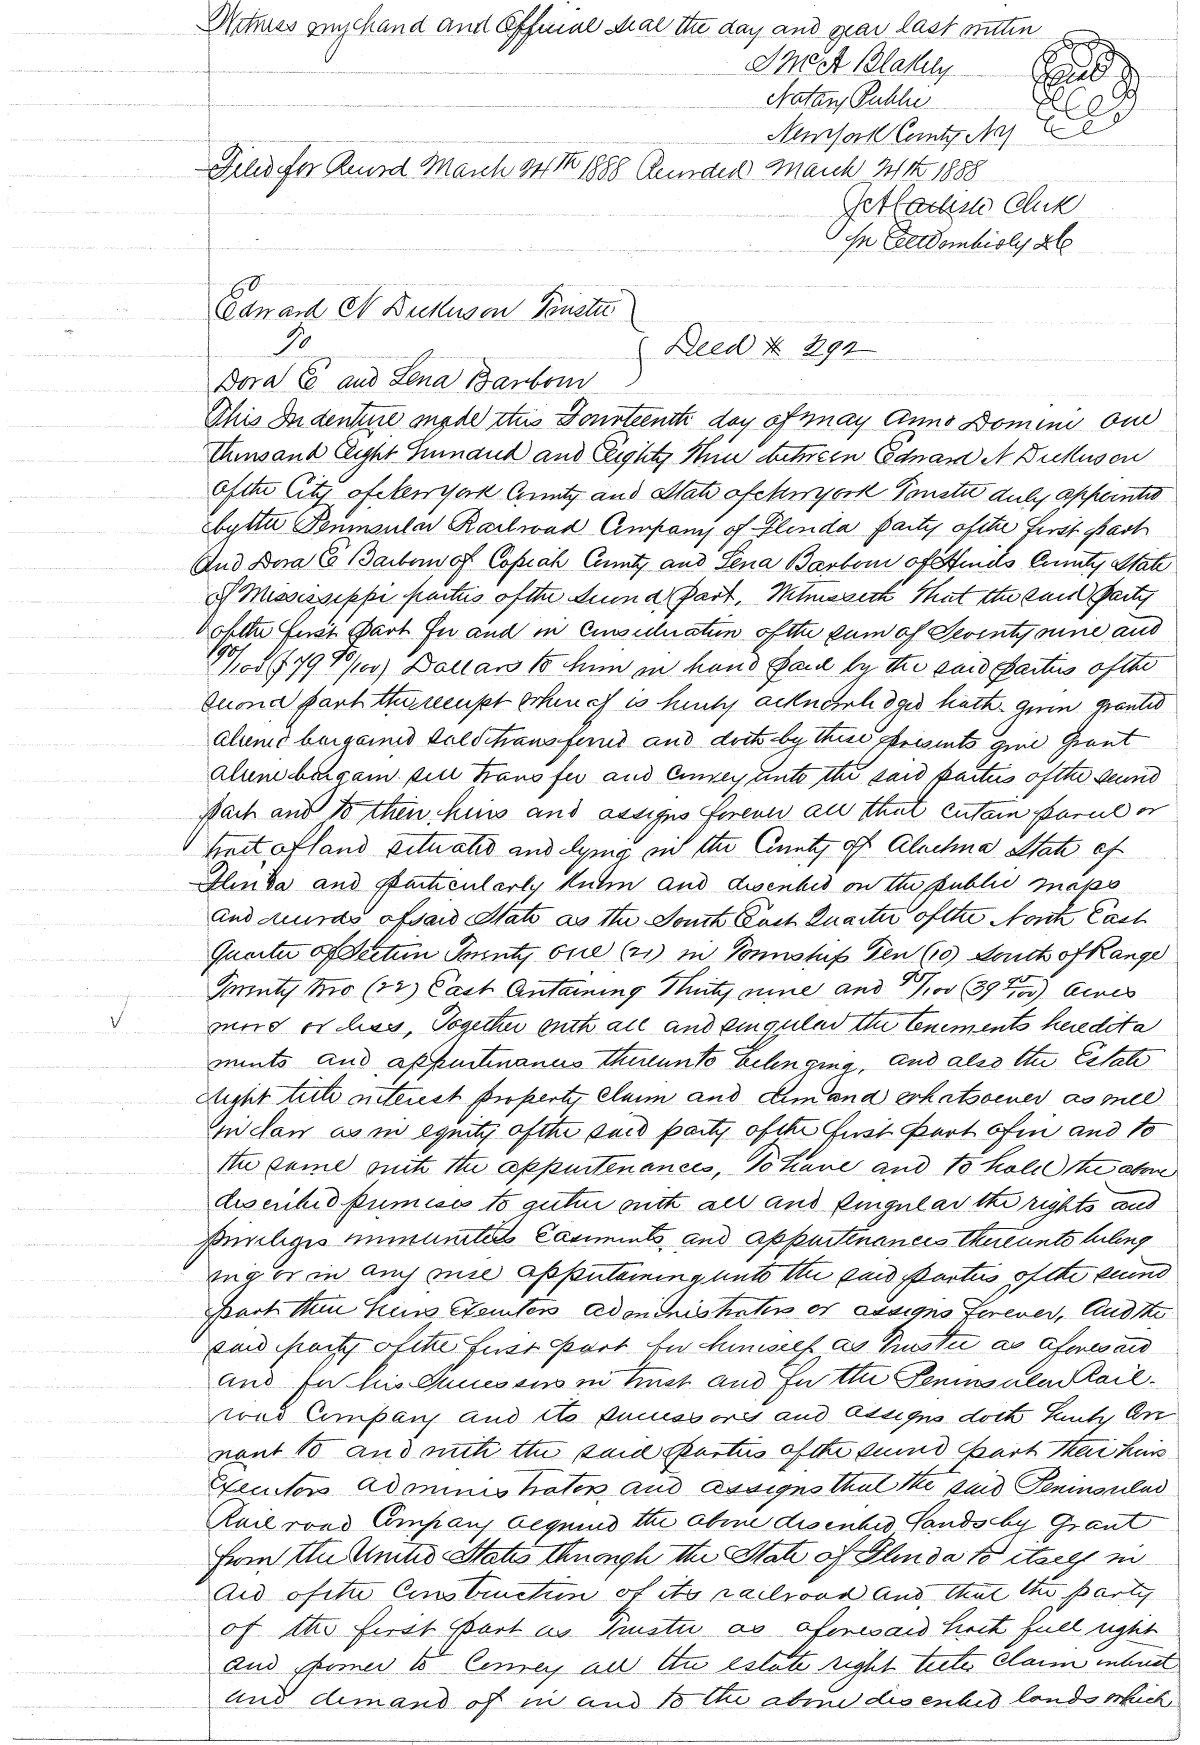 Witness my hand and Official seal the day and year last written
S McA Blakely
Notary Public
New York County NY
Seal
Filed for Record March 24th 1888 Recorded March 24th 1888
Clerk
Edward N Dickerson Trustee
To
Deed # 292
Dora E and Lena Barbour
This Indenture made this Fourteenth day of May Anno Domini one
thousand Eight hundred and Eighty Three between Edward N Dickerson
of the City of New York County and State of New York Trustee duly appointed
by the Peninsular Railroad Company of Florida party of the first part
And Dora E Barbour of Copiah County and Lena Barbour of Hinds County State
of Mississippi parties of the second part, Witnesseth That the said party
of the first part for and in consideration of the sum of Seventy nine and
90/100 ($79 90/100) Dollars to him in hand paid by the said parties of the
second part the receipt whereof is hereby acknowledged hath given granted
aliened bargained sold & transferred and doth by these presents give grant
aliene bargain sell transfer and convey unto the said parties of the second
part and to their heirs and assigns forever all that certain parcel or
tract of land situated and lying in the County of Alachua State of
Florida and particularly known and described on the public maps
and records of said State as the South East Quarter of the North East
Quarter of Section Twenty one (21) in Township Ten (10) South of Range
Twenty two (22) East Containing Thirty nine and 95/100 (39 95/100) Acres
more or less, Together with all and singular the tenements heredita
ments and appurtenances thereunto belonging, and also the Estate
right title interest property claim and demand whatsoever as well
in law as in equity of the said party of the first part of in and to
the same with the appurtenances, To have and to hold the above
described premises to gether with all and singular the rights and
privileges immunities Easments and appurtenances thereunto belong
ing or in any wise appertaining unto the said parties of the second
part their heirs Executors administrators or assigns forever, And the
said party of the first part for himself as Trustee as aforesaid
and for his Successors in trust and for the Peninsular Rail-
road Company and its successors and assigns doth hereby Cov
nant to and with the said parties of the second part their heirs
Executors administrators and assigns that the said Peninsular
Rail road Company acquired the above described lands by Grant
from the United States through the State of Florida to itself in
aid of the Construction of its railroad and that the party
of the first part as Trustee as aforesaid hath full right
and power to Convey all the estate right title claim interest
and demand of in and to the above described lands which